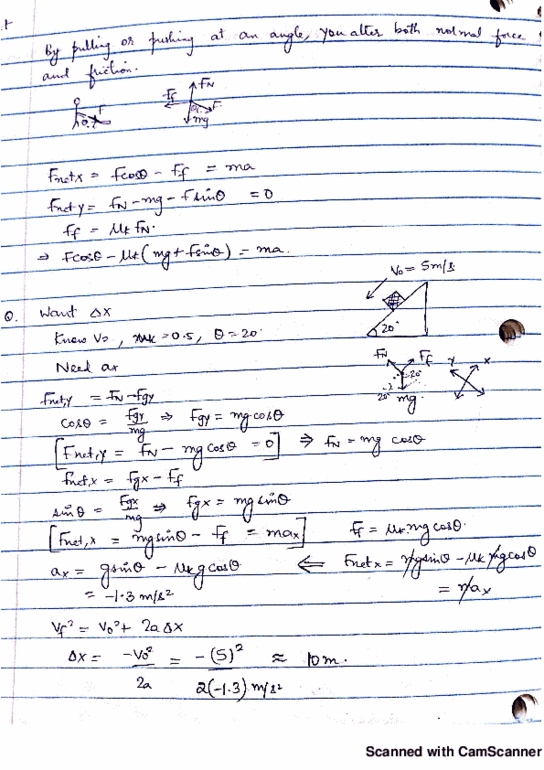 By pulling or pushing at an angle, you alter both normal force
and friction.
F_N
F_f
F
θ
F
mg
Fnet,x = Fcosθ - F_f = ma
Fnet,y = F_N - mg - Fsinθ = 0
F_f = μ_k F_N.
⇒ Fcosθ - μ_k (mg + Fsinθ) = ma.
V₀ = 5m/s
20°
Q. Want Δx
Know V₀, μ_k = 0.5, θ = 20°
Need ax
F_N
F_f
20°
20°
mg.
y
x
Fnet,y = F_N - Fgy
cosθ = Fgy/mg ⇒ Fgy = mg cosθ
[Fnet,y = F_N - mg cosθ = 0] ⇒ F_N = mg cosθ
Fnet,x = Fgx - F_f
sinθ = Fgx/mg ⇒ Fgx = mg sinθ
[Fnet,x = mg sinθ - F_f = max] F_f = μ_k mg cosθ.
ax = g sinθ - μ_k g cosθ ⇐ Fnet x = mg sinθ - μ_k mg cosθ
= -1.3 m/s² = max
V_f² = V₀² + 2a Δx
Δx = -V₀²/2a = -(5)²/2(-1.3) m/s² ≈ 10m.
Scanned with CamScanner